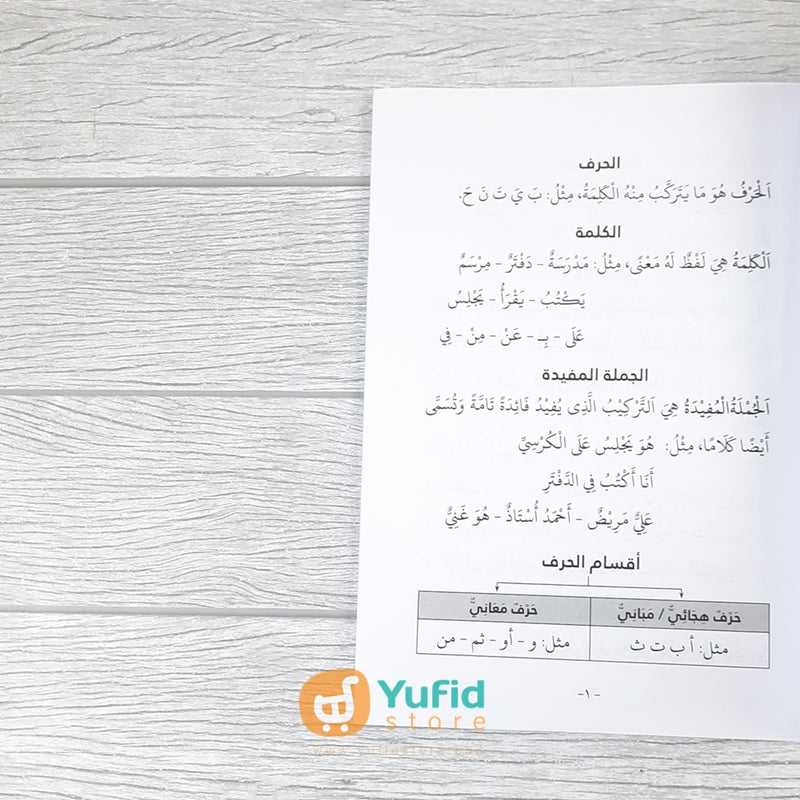 الحرف
اَلْحَرْفُ هُوَ مَا يَتَرَكَّبُ مِنْهُ الْكَلِمَةُ، مِثْلُ: بَ يَ تَ نَ حَ.
الكلمة
اَلْكَلِمَةُ هِيَ لَفْظٌ لَهُ مَعْنًى، مِثْلُ: مَدْرَسَةٌ - دَفْتَرٌ - مِرْسَمٌ
يَكْتُبُ - يَقْرَأُ - يَجْلِسُ
عَلَى - بِـ - عَنْ - مِنْ - فِي
الجملة المفيدة
اَلْجُمْلَةُ الْمُفِيْدَةُ هِيَ اَلتَّرْكِيْبُ الَّذِى يُفِيْدُ فَائِدَةً تَامَّةً وَتُسَمَّى
أَيْضًا كَلَامًا، مِثْلُ: هُوَ يَجْلِسُ عَلَى الْكُرْسِيِّ
أَنَا أَكْتُبُ فِي الدَّفْتَرِ
عَلِيٌّ مَرِيْضٌ - أَحْمَدُ أُسْتَاذٌ - هُوَ غَنِيٌّ
أقسام الحرف
حَرْفٌ هِجَائِيٌّ / مَبَانِيٌّ
حَرْفٌ مَعَانِيٌّ
مثل: أ ب ت ث
مثل: و - أو - ثم - من
-١-
Yufid
store
www.yufidstore.com